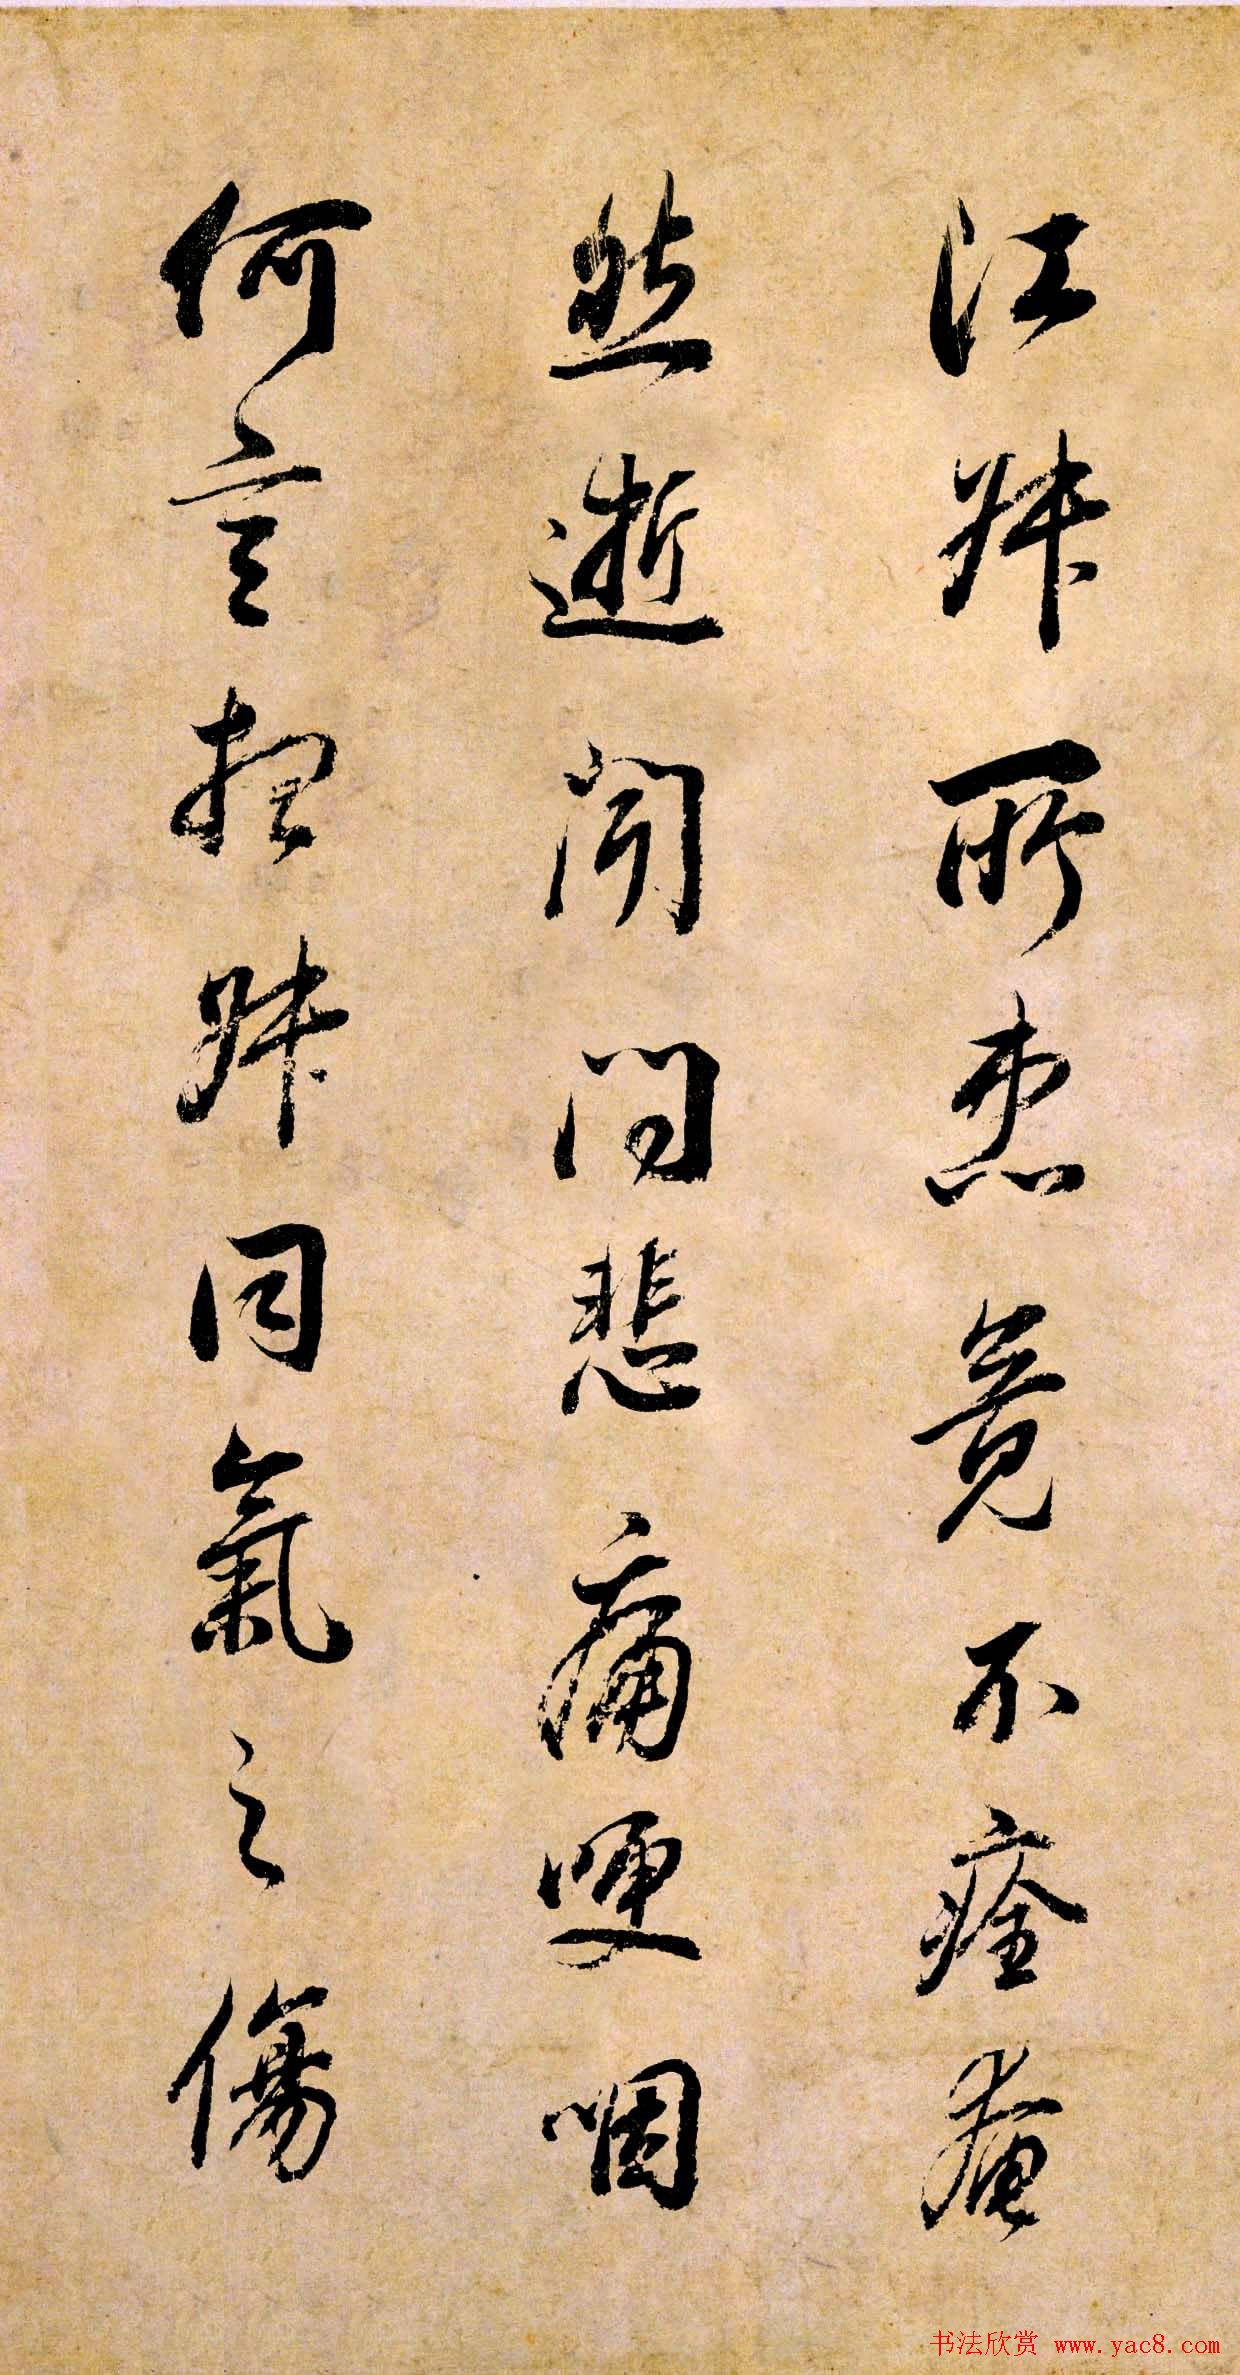 江叔所患竟不痊奄
然逝聞問悲痛哽咽
何言想叔同氣之傷
书法欣赏 www.yac8.com